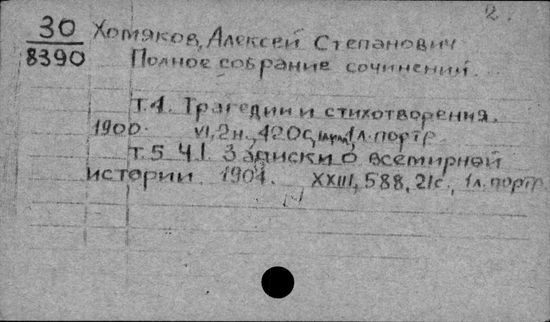 2.
30 Хомяков, Алексей Степанович
8390 Полное собрание сочинений.
т.4. Трагедии и стихотворения.
1900. VI, 2н., 420с, 1л. портр.
т.5 Ч.1. Записки о всемирной
истории 1904. XXIII, 588, 21с., 1л. портр.